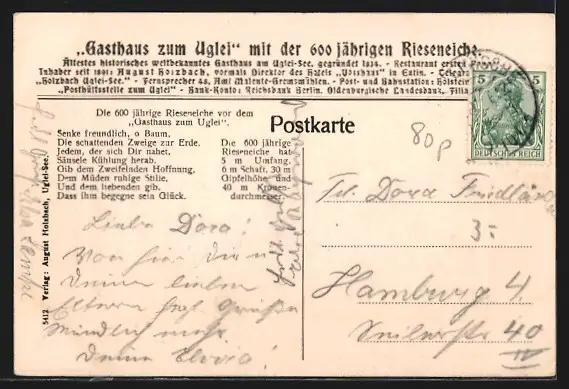 „Gasthaus zum Uglei“ mit der 600 jährigen Rieseneiche.
Ältestes historisches weltbekanntes Gasthaus am Uglei-See, gegründet 1824. - Restaurant ersten
Inhaber seit 1891: August Holzbach, vormals Direktor des Hotels „Voßhaus“ in Eutin. - Telegr.
„Holzbach Uglei-See.“ - Fernsprecher 48, Amt Malente-Gremsmühlen. - Post- und Bahnstation: Holstein
„Posthülfsstelle zum Uglei“ - Bank-Konto: Reichsbank Berlin. Oldenburgische Landesbank, Filia
Die 600 jährige Rieseneiche vor dem
„Gasthaus zum Uglei“.
Senke freundlich, o Baum,
Die schattenden Zweige zur Erde.
Jedem, der sich Dir nahet,
Säusele Kühlung herab.
Gib dem Zweifelnden Hoffnung,
Dem Müden ruhige Stille,
Und dem liebenden gib.
Dass ihm begegne sein Glück.
Die 600 jährige
Rieseneiche hat
5 m Umfang,
6 m Schaft, 30 m
Gipfelhöhe und
40 m Kronen-
durchmesser.
Postkarte
80 p
5 5
DEUTSCHES REICH
Liebe Dora!
Von hier die u
Deinen lieben
Eltern Grüße
mündlich mehr
Deine
Dora Friedländer
3.-
Hamburg 4
40
IV
5412 Verlag: August Holzbach, Uglei-See.